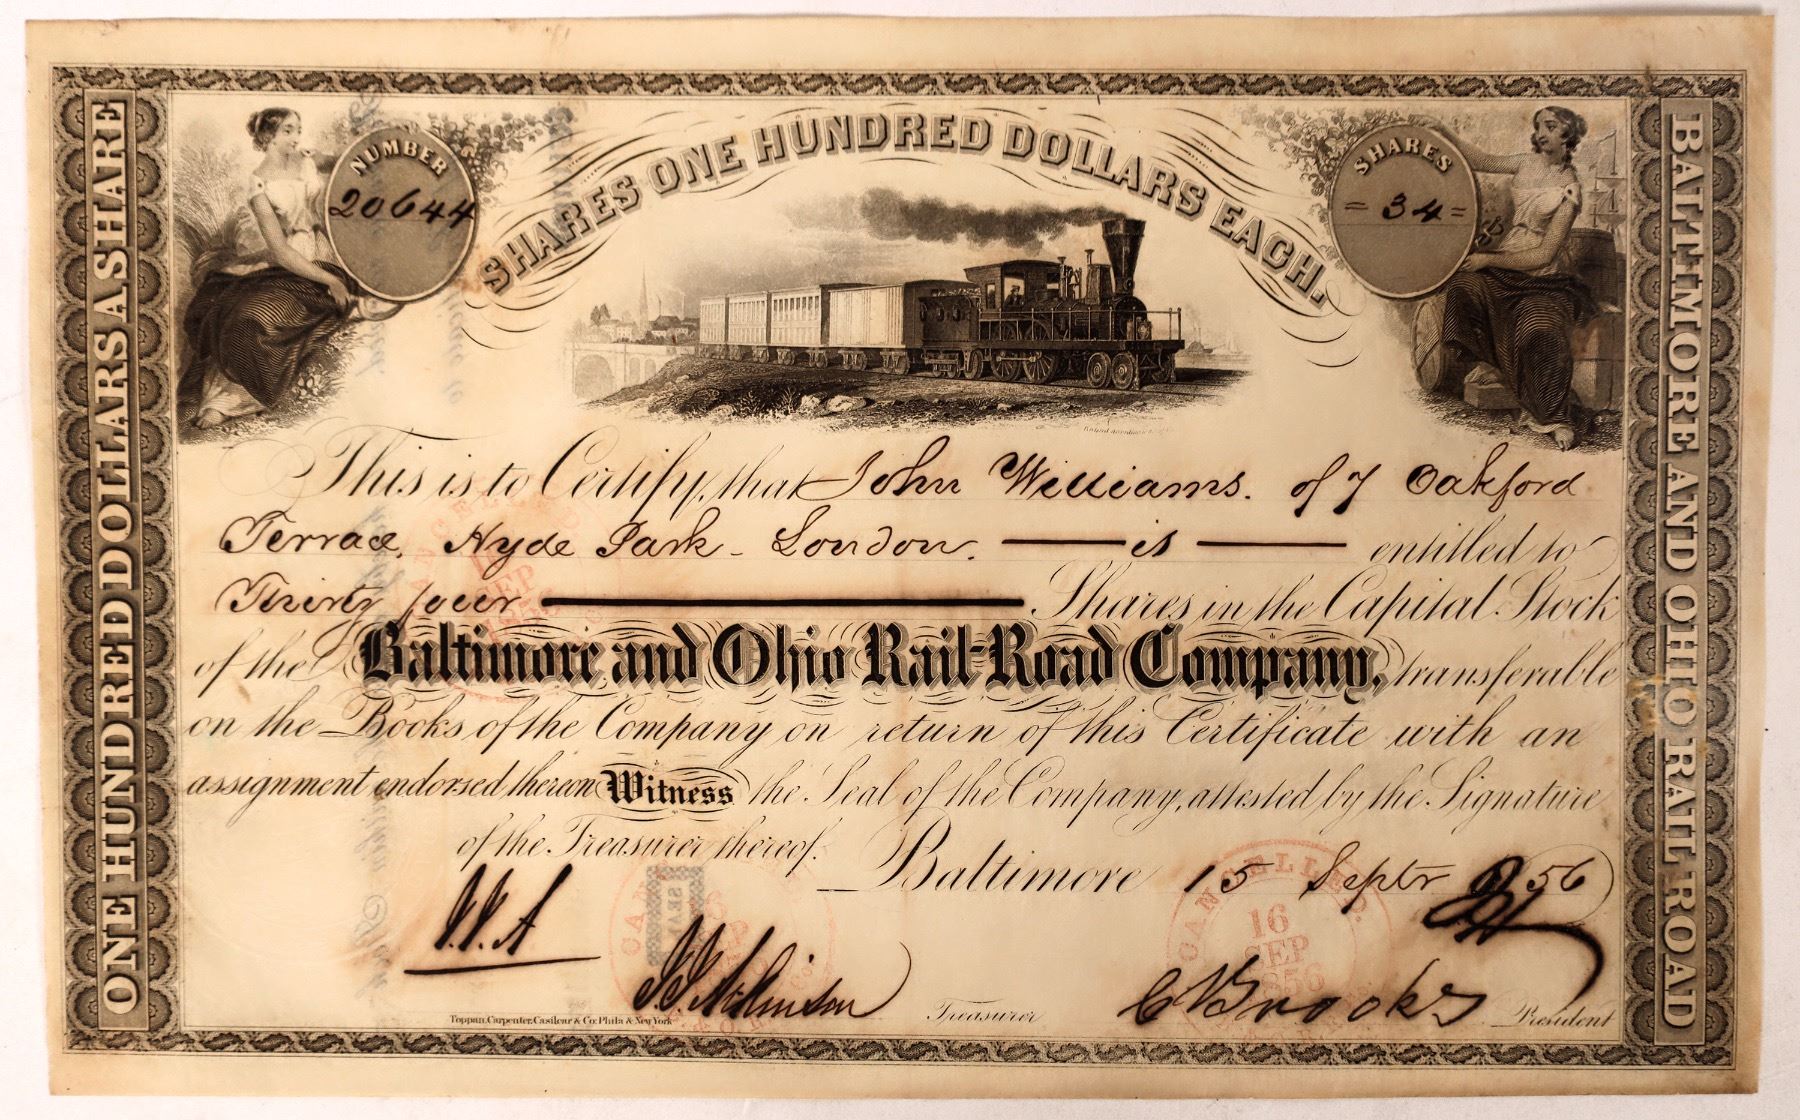 ONE HUNDRED DOLLARS A SHARE
NUMBER
20644
SHARES ONE HUNDRED DOLLARS EACH.
SHARES
= 34 =
BALTIMORE AND OHIO RAIL ROAD
This is to Certify, that John Williams. of 7 Oakford
Terrace, Hyde Park - London. is entitled to
Thirty four Shares in the Capital Stock
of the Baltimore and Ohio Rail-Road Company, transferable
on the Books of the Company on return of this Certificate with an
assignment endorsed thereon Witness the Seal of the Company, attested by the Signature
of the Treasurer thereof.
Baltimore 15 Septr 1856
J.J.A
J J Atkinson Treasurer
C Brooks President
CANCELLED.
16
SEP
1856
Toppan, Carpenter, Casilear & Co. Phila & New York